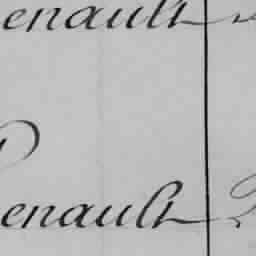 enault
Renault